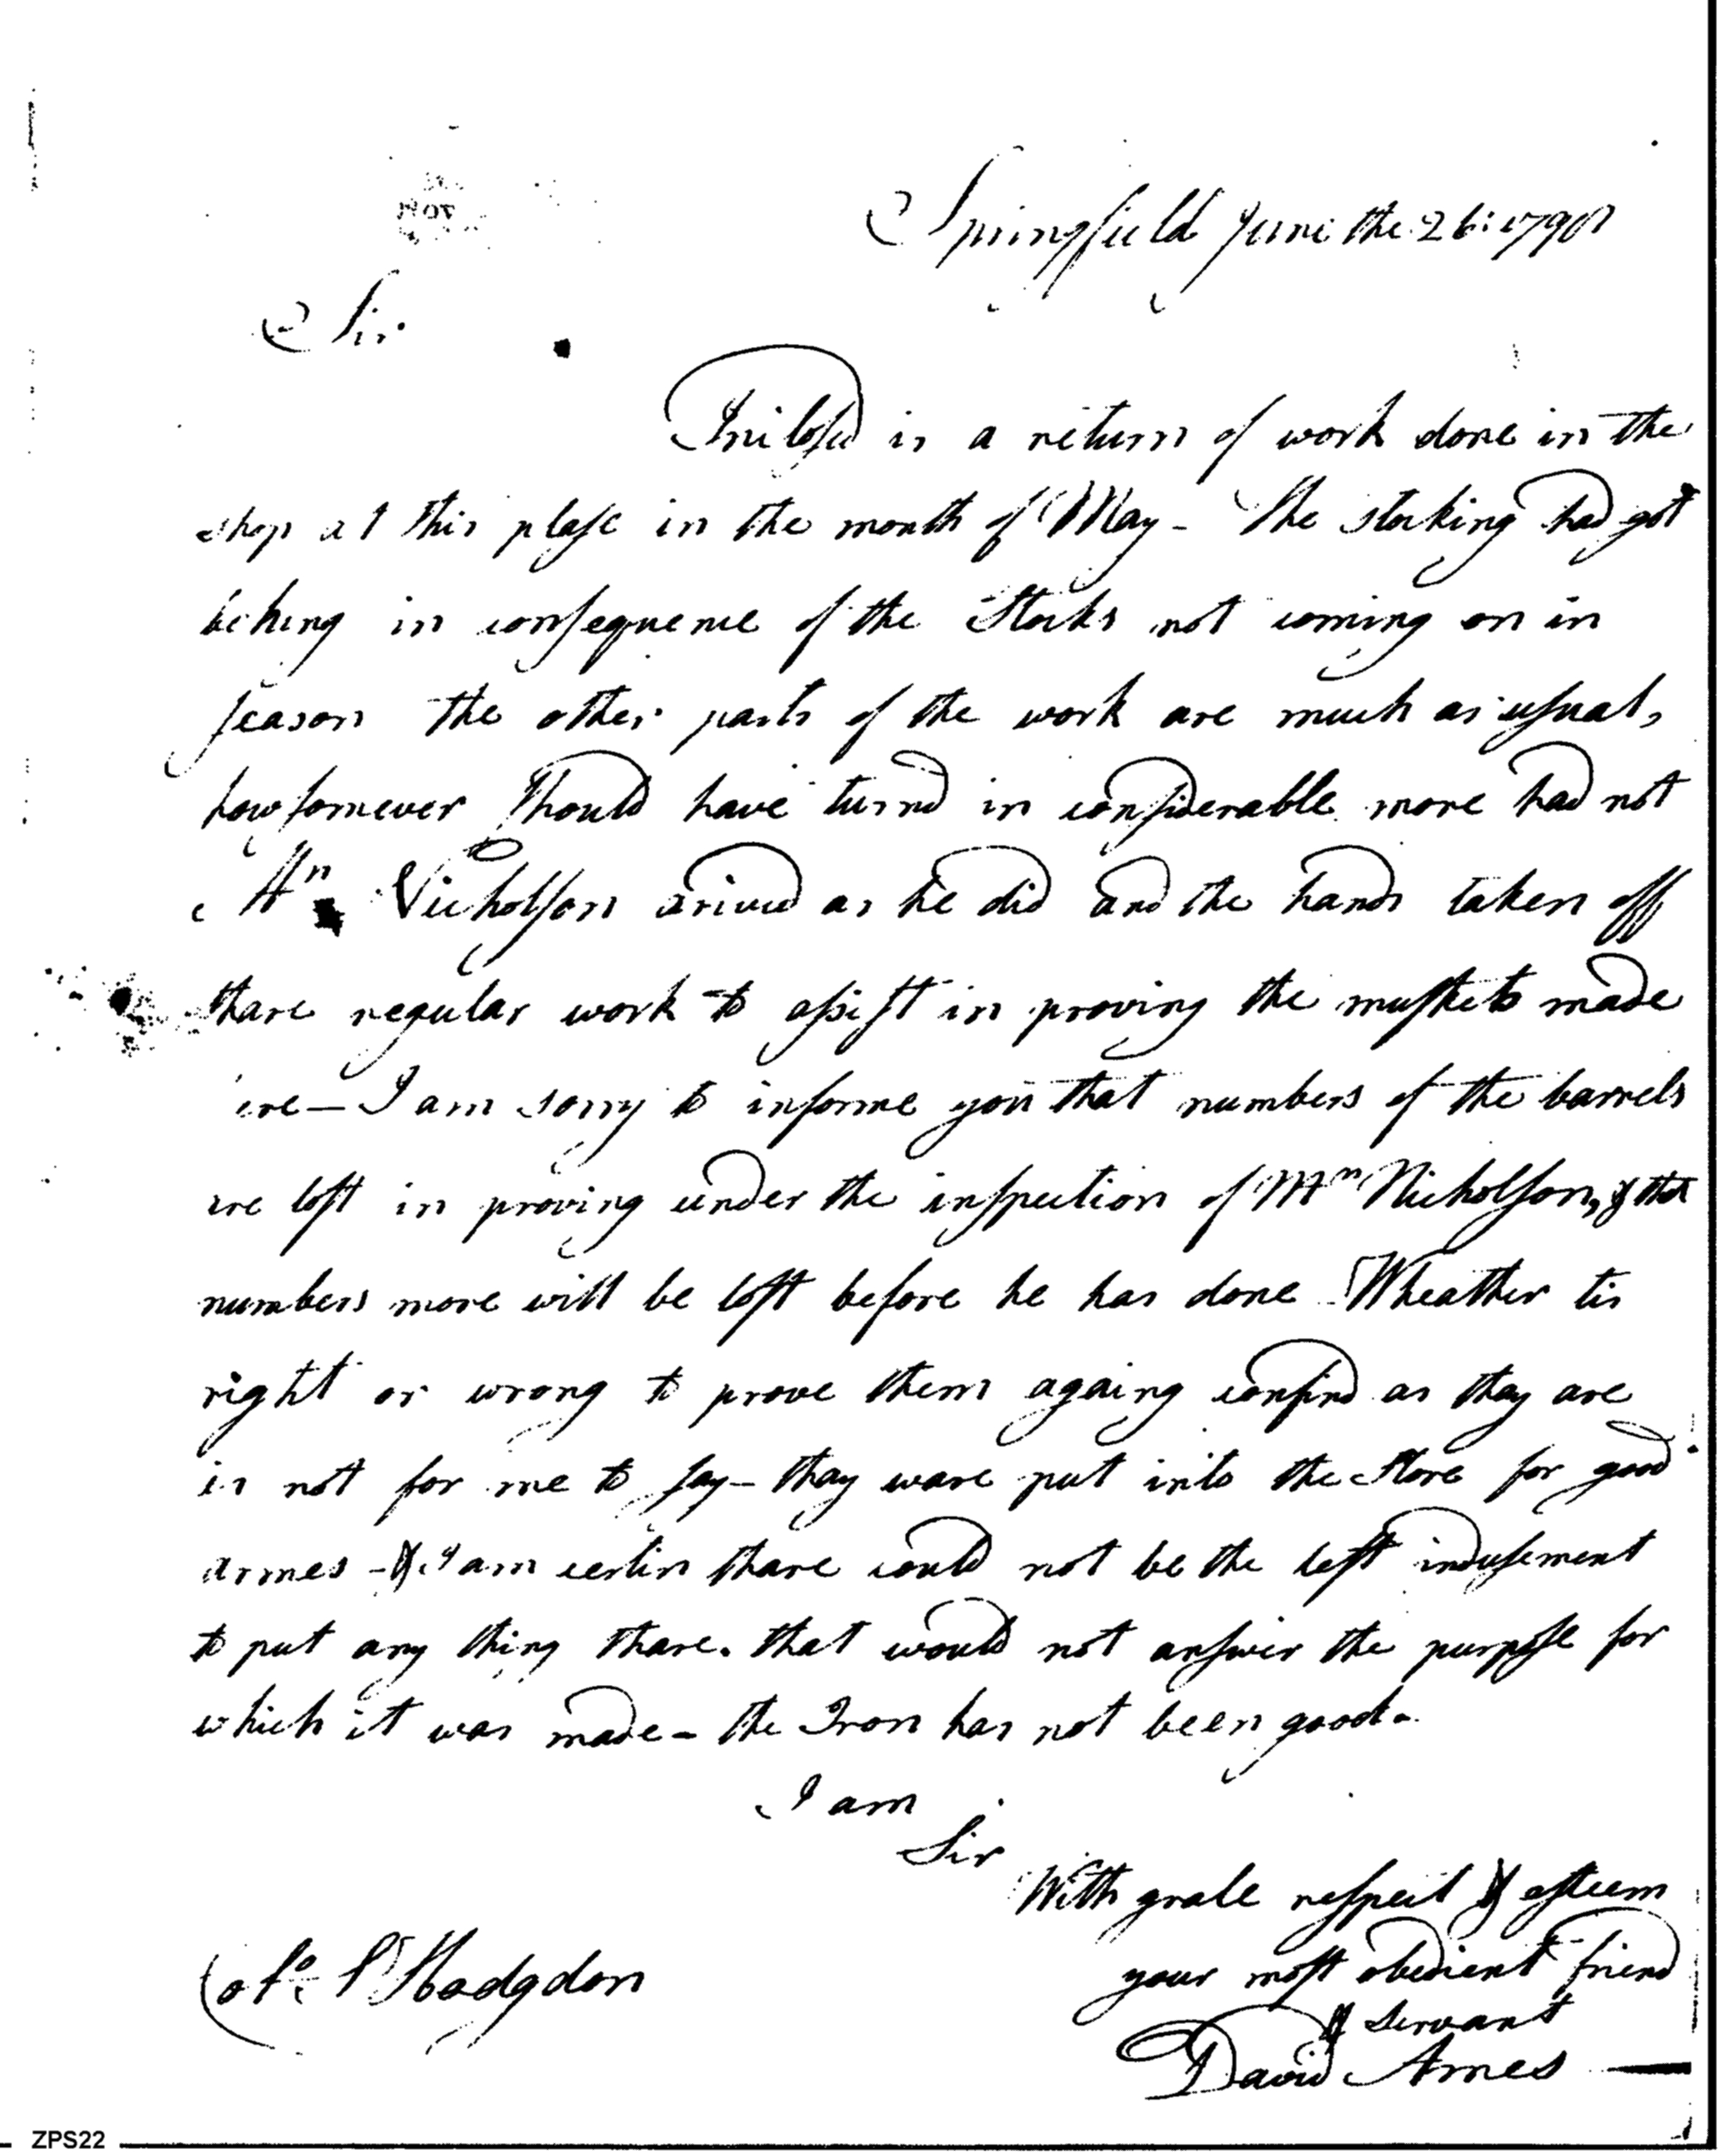 Springfield June the 26: 1798
Sir
Inclosed is a return of work done in the
shop at this plase in the month of May - The stocking had got
behing in consequence of the Stocks not coming on in
season the other parts of the work are much as usual,
howsomever should have turnd in considerable more had not
Mr Nicholson arived as he did and the hands taken off
thare regular work to assist in proving the muskets made
ere - I am sorry to informe you that numbers of the barrels
are lost in proving under the inspection of Mr Nicholson, & that
numbers more will be lost before he has done - Wheather tis
right or wrong to prove them againg confind as they are
is not for me to say - thay ware put into the Store for good
armes - & I am certin thare could not be the lest indusement
to put any thing thare. that would not answer the purpose for
which it was made - the Iron has not been good.
I am
Sir
With grate respect & esteem
your most obedient friend
& servant
David Ames
Colo. S Hodgdon
ZPS22